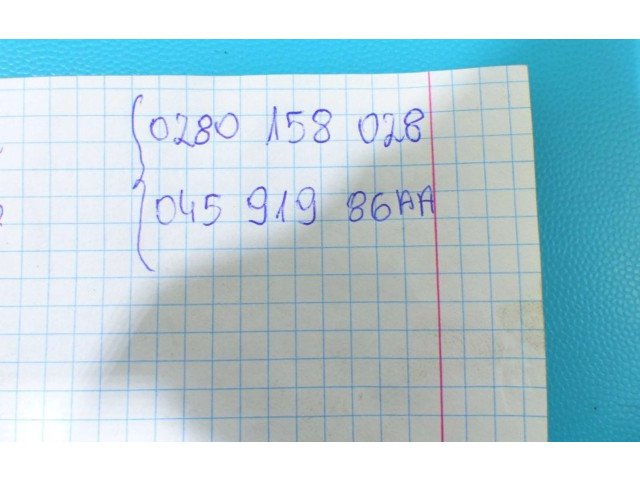 0280 158 028
045 919 86AA